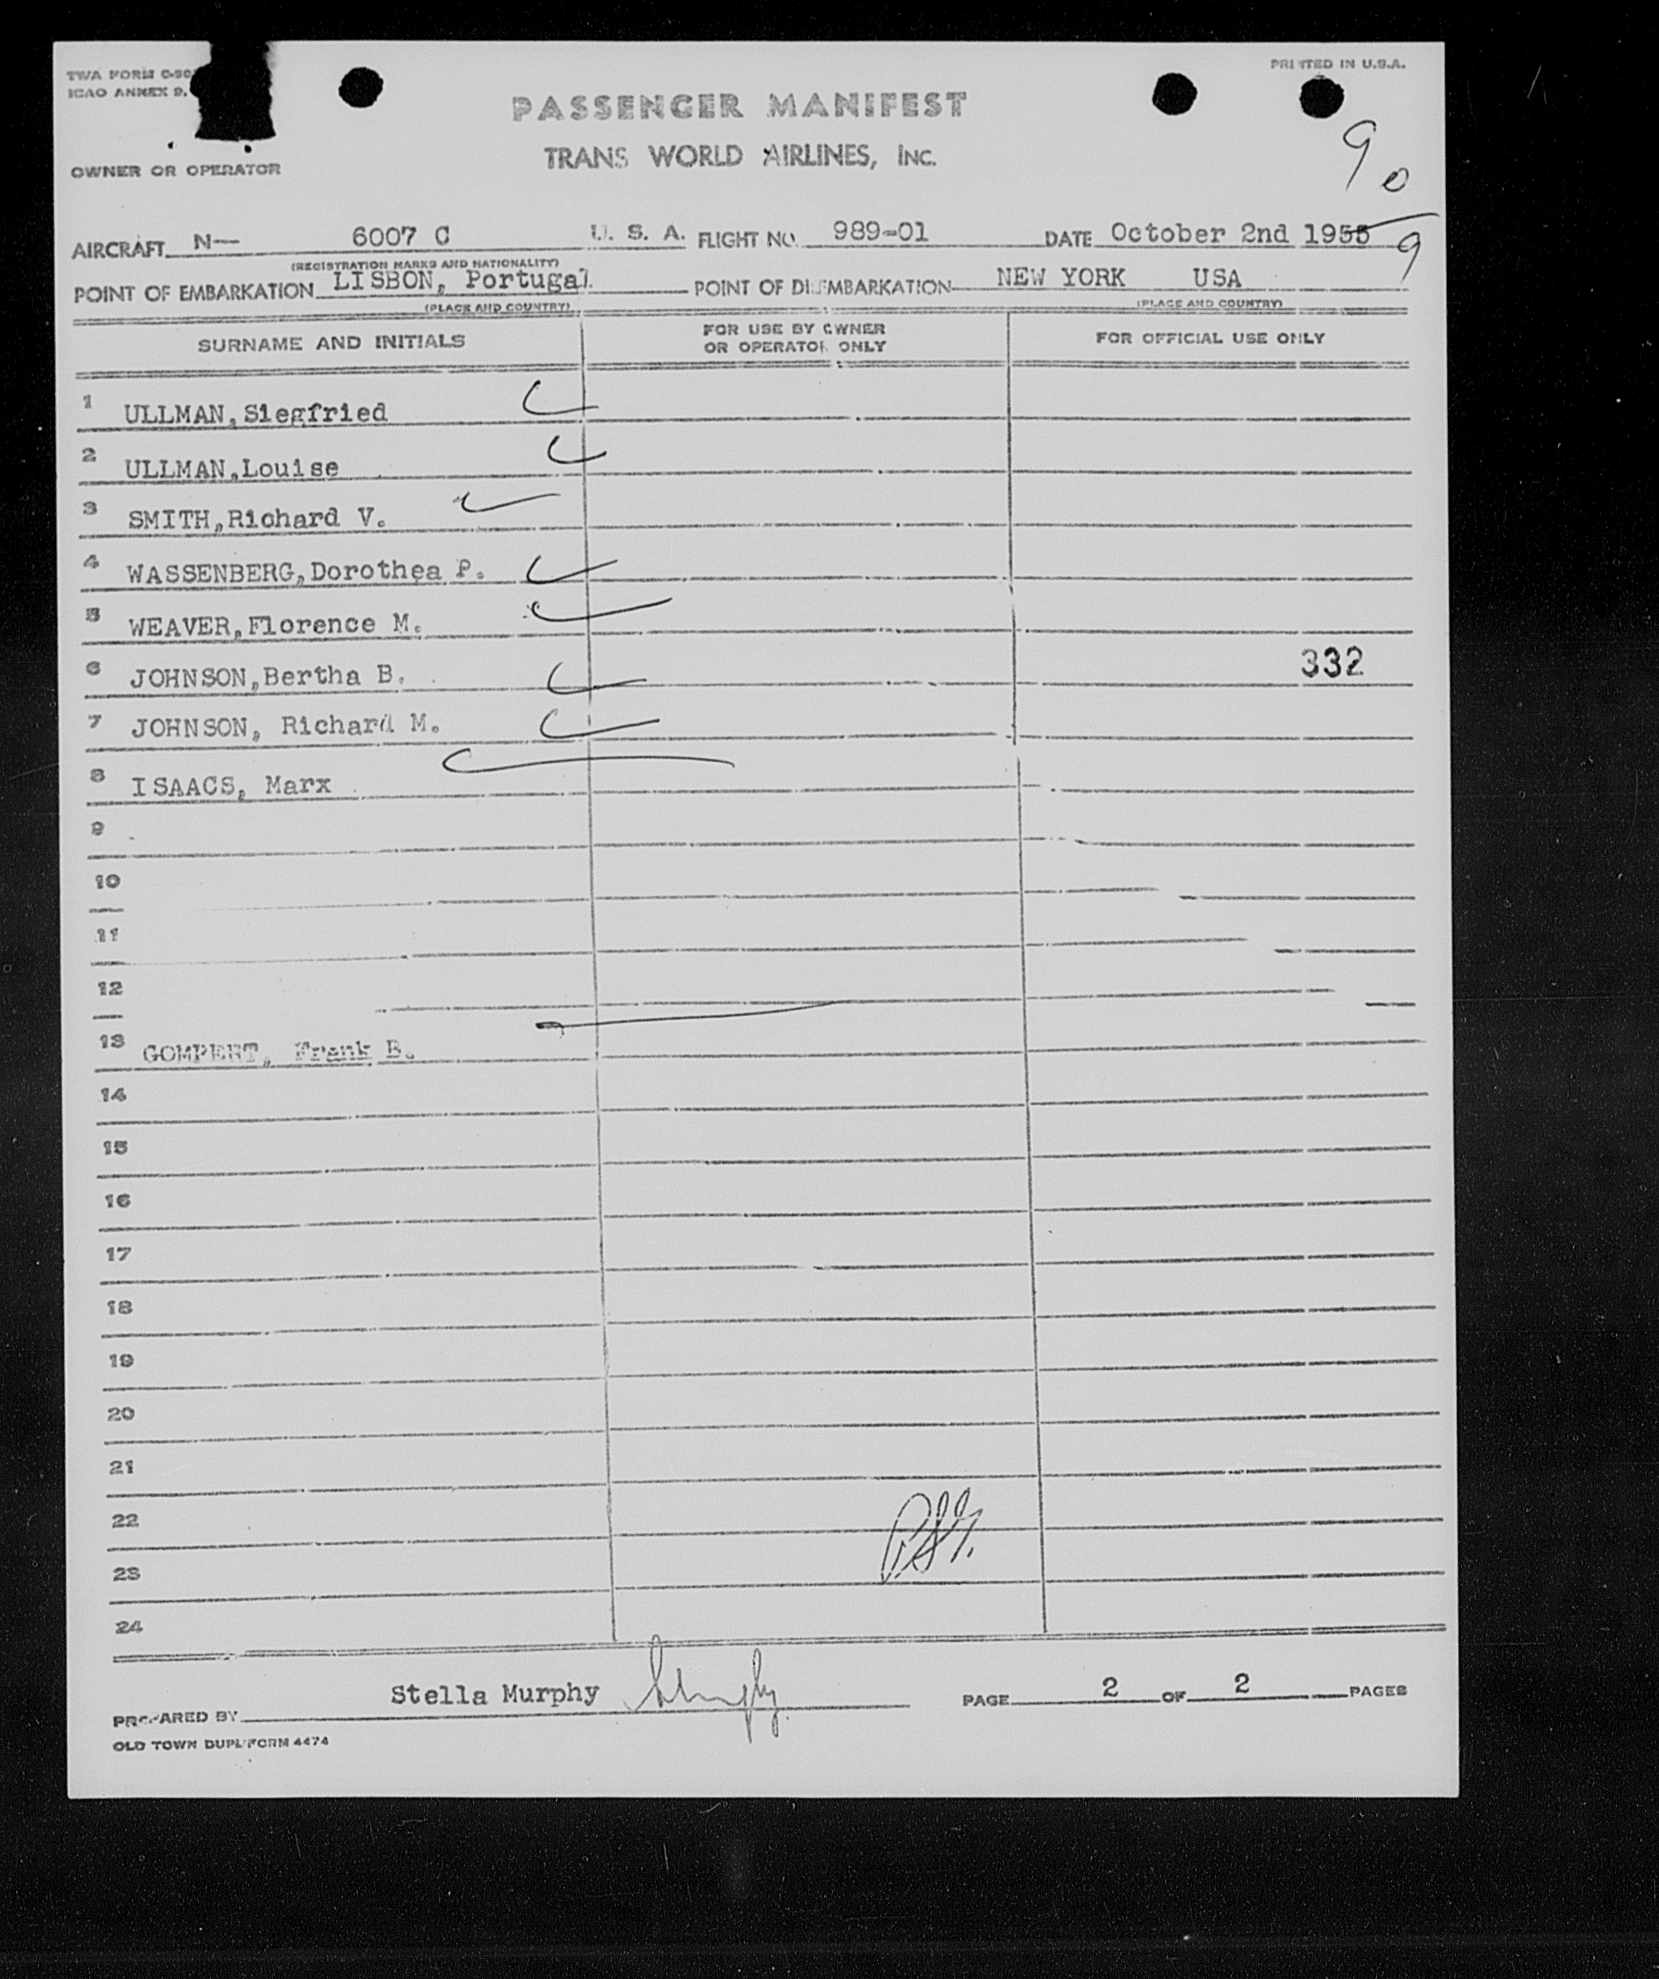 TWA FORM C-90
PRINTED IN U.S.A.
ICAO ANNEX 9.
PASSENGER MANIFEST
TRANS WORLD AIRLINES, INC.
9 0
9
OWNER OR OPERATOR
AIRCRAFT N— 6007 C U. S. A. FLIGHT NO. 989-01 DATE October 2nd 1955
(REGISTRATION MARKS AND NATIONALITY)
POINT OF EMBARKATION LISBON, Portugal POINT OF DISEMBARKATION NEW YORK USA
(PLACE AND COUNTRY) (PLACE AND COUNTRY)
SURNAME AND INITIALS FOR USE BY OWNER OR OPERATOR ONLY FOR OFFICIAL USE ONLY
1 ULLMAN, Siegfried
2 ULLMAN, Louise
3 SMITH, Richard V.
4 WASSENBERG, Dorothea P.
5 WEAVER, Florence M.
6 JOHNSON, Bertha B. 332
7 JOHNSON, Richard M.
8 ISAACS, Marx
9
10
11
12
13 GOMPERT, Frank B.
14
15
16
17
18
19
20
21
22
23
24
PREPARED BY Stella Murphy PAGE 2 OF 2 PAGES
OLD TOWN DUPL/FORM 4474